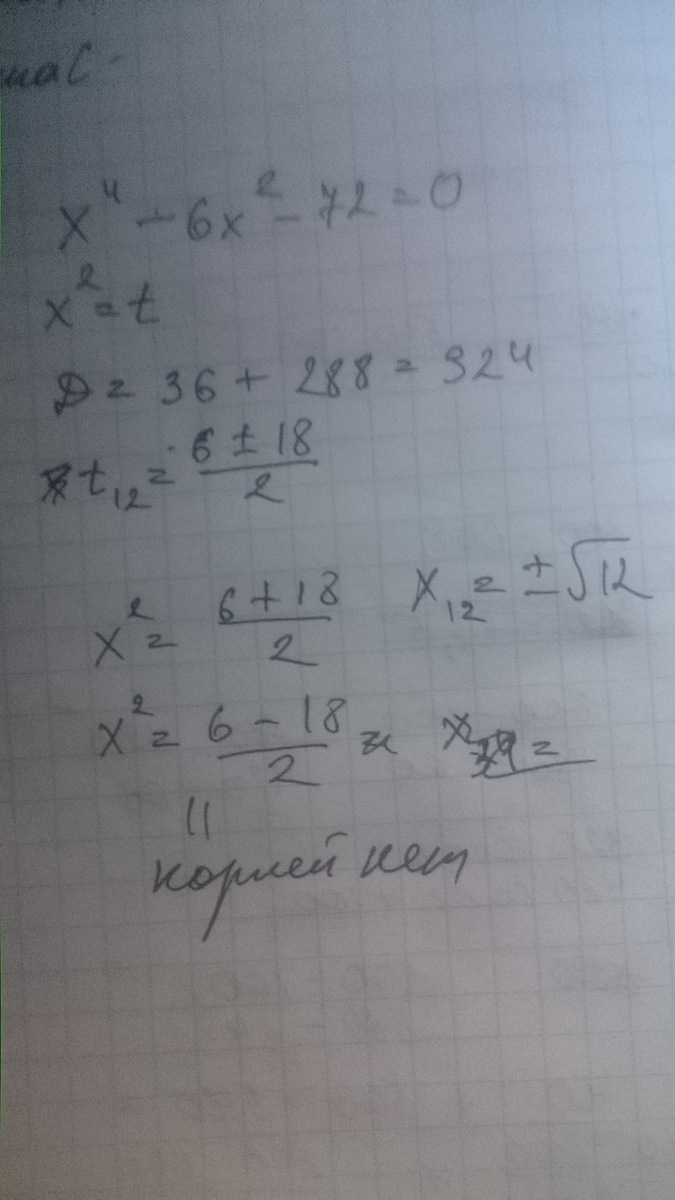 x⁴ - 6x² - 72 = 0
x² = t
D = 36 + 288 = 324
t₁₂ = (6 ± 18)/2
x² = (6 + 18)/2 x₁₂ = ±√12
x² = (6 - 18)/2
||
корней нет